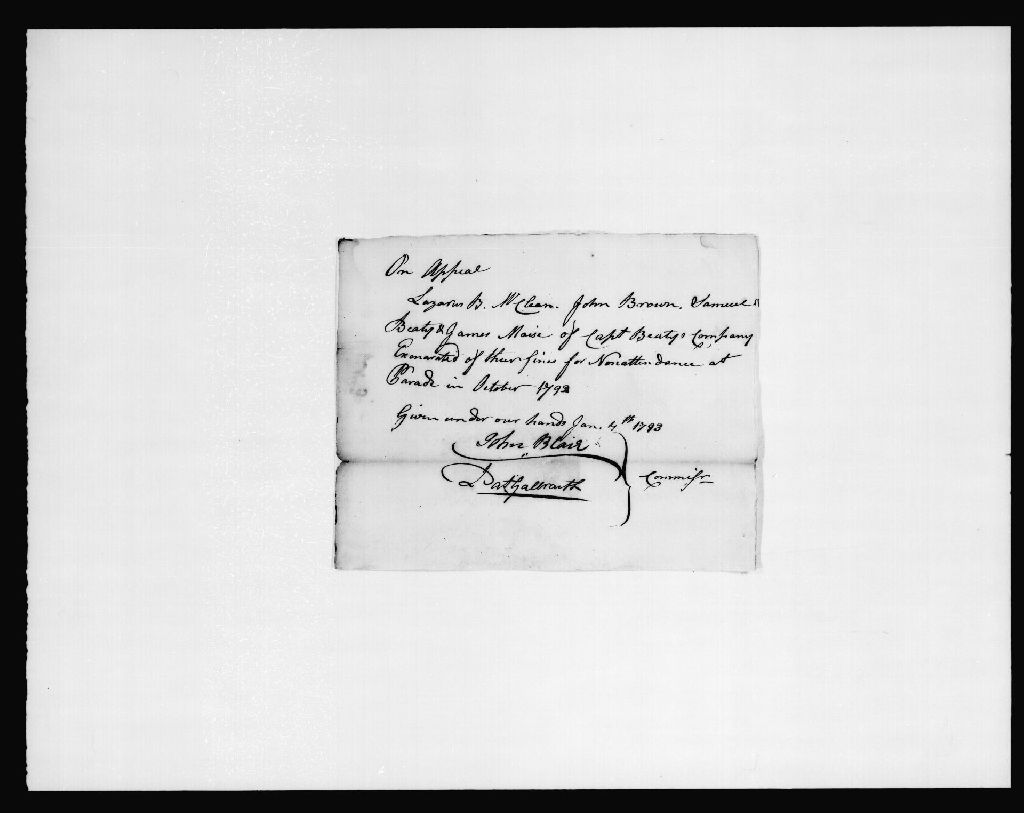 On Appeal
Lazarus B. McClean. John Brown. Samuel
Beaty & James Maise of Capt Beatys Company
Exonarated of their fines for Nonattendance at
Parade in October 1792
Given under our hands Jan. 4th 1793
John Blair
Pat Galbraith
Commissr